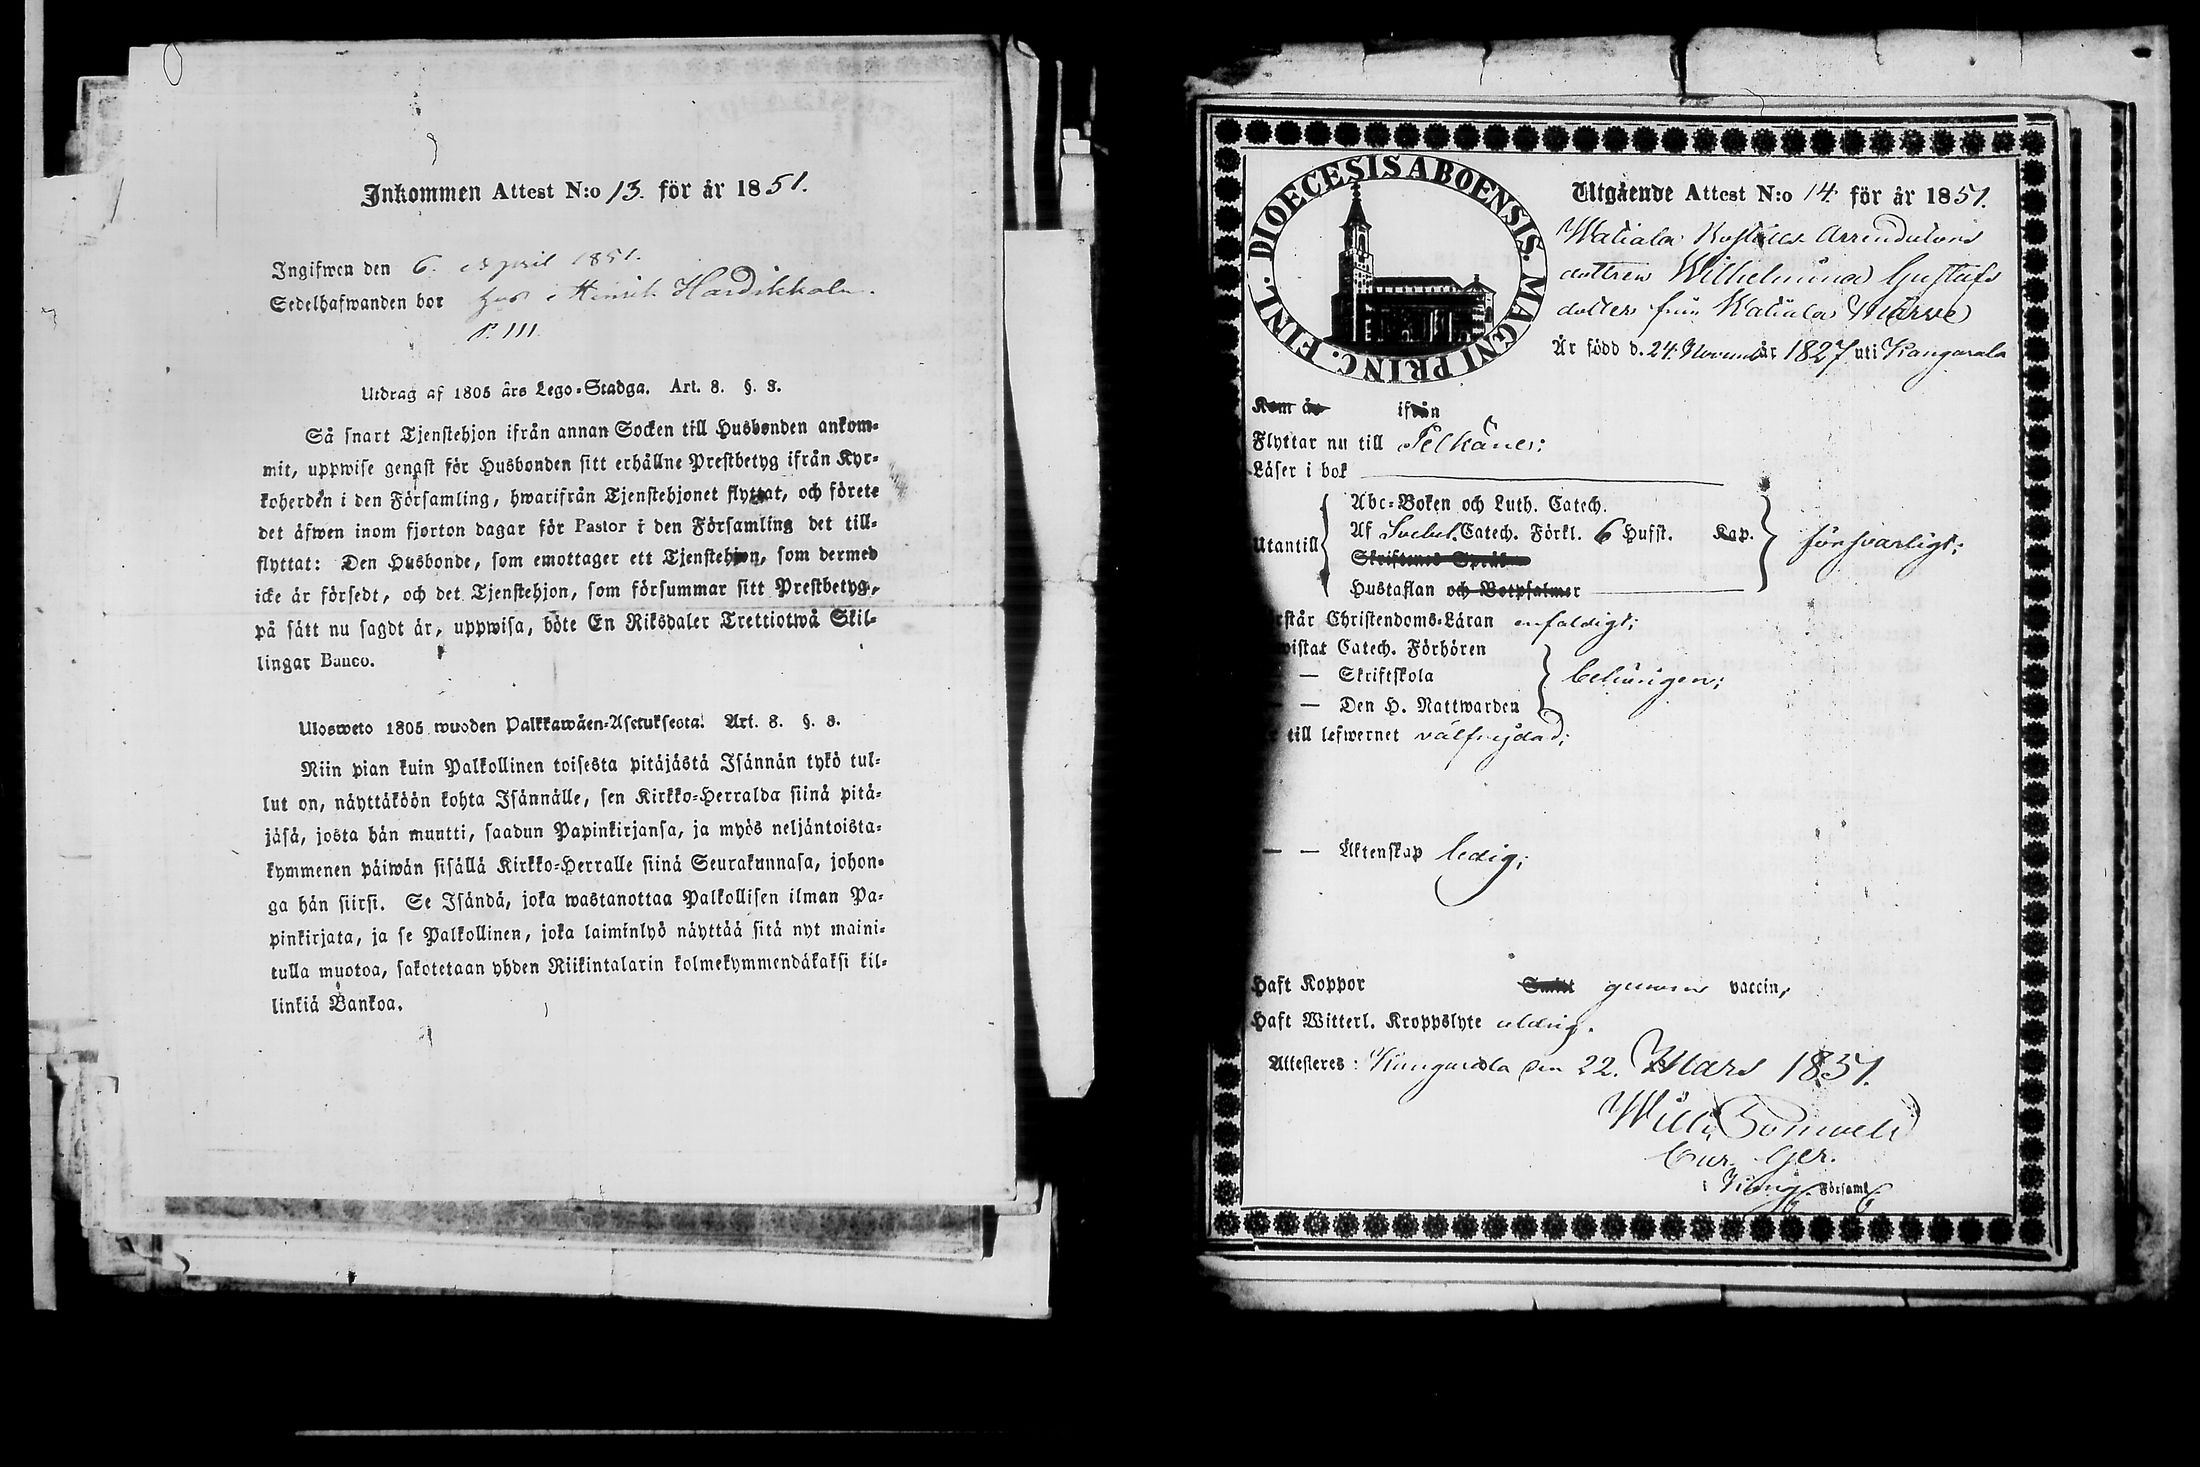 Inkommen Attest N:o 13. för år 1851.
Ingifwen den 6. April 1851.
Sedelhafwanden bor hos Henrik
P. 111.
Utdrag af 1805 års Lego-Stadga. Art. 8. §. 8.
Så snart Tjenstehjon ifrån annan Socken till Husbonden ankom-
mit, uppwise genast för Husbonden sitt erhållne Prestbetyg ifrån Kyr-
koherden i den Församling, hwarifrån Tjenstehjonet flyttat, och förete
det äfwen inom fjorton dagar för Pastor i den Församling det till-
flyttat: Den Husbonde, som emottager ett Tjenstehjon, som dermed
icke är försedt, och det Tjenstehjon, som försummar sitt Prestbetyg,
på sätt nu sagdt är, uppwisa, böte En Riksdaler Trettiotwå Skil-
lingar Banco.
Ulosweto 1805 wuoden Palkkawäen-Asetuksesta. Art. 8. §. 8.
Niin pian kuin Palkollinen toisesta pitäjästä Isännän tykö tul-
lut on, näyttäköön kohta Isännälle, sen Kirkko-Herralda siinä pitä-
jäsä, josta hän muutti, saadun Papinkirjansa, ja myös neljäntoista-
kymmenen päiwän sisällä Kirkko-Herralle siinä Seurakunnasa, johon-
ga hän siirsi. Se Isändä, joka wastanottaa Palkollisen ilman Pa-
pinkirjata, ja se Palkollinen, joka laiminlyö näyttää sitä nyt maini-
tulla muotoa, sakotetaan yhden Riikintalarin kolmekymmendäkaksi kil-
linkiä Bankoa.
DIOECESIS ABOENSIS. MAGNI PRINC. FINL.
Utgående Attest N:o 14. för år 1851.
Watiala Arrendators
dottren Wilhelmina Gustafs
dotter från Watiala
Är född d. 24. Novemb. år 1827 uti Kangasala
Kom år ifrån
Flyttar nu till Pelkäne;
Läser i bok
Utantill
Abc-Boken och Luth. Catech.
Af Svebel. Catech. Förkl. 6 Hufst. Kap.
försvarligt;
Skriftenes Språk
Hustaflan och Botpsalmer
rstår Christendoms-Läran enfaldigt;
wistat Catech. Förhören
— Skriftskola
behörigen;
— Den H. Nattwarden
till lefwernet välfrejdad;
— — Äktenskap ledig;
Haft Koppor genom vaccin,
Haft Witterl. Kroppslyte aldrig.
Attesteres: Kangasala den 22. Mars 1851.
Cur. Ger.
i Kang. Församl